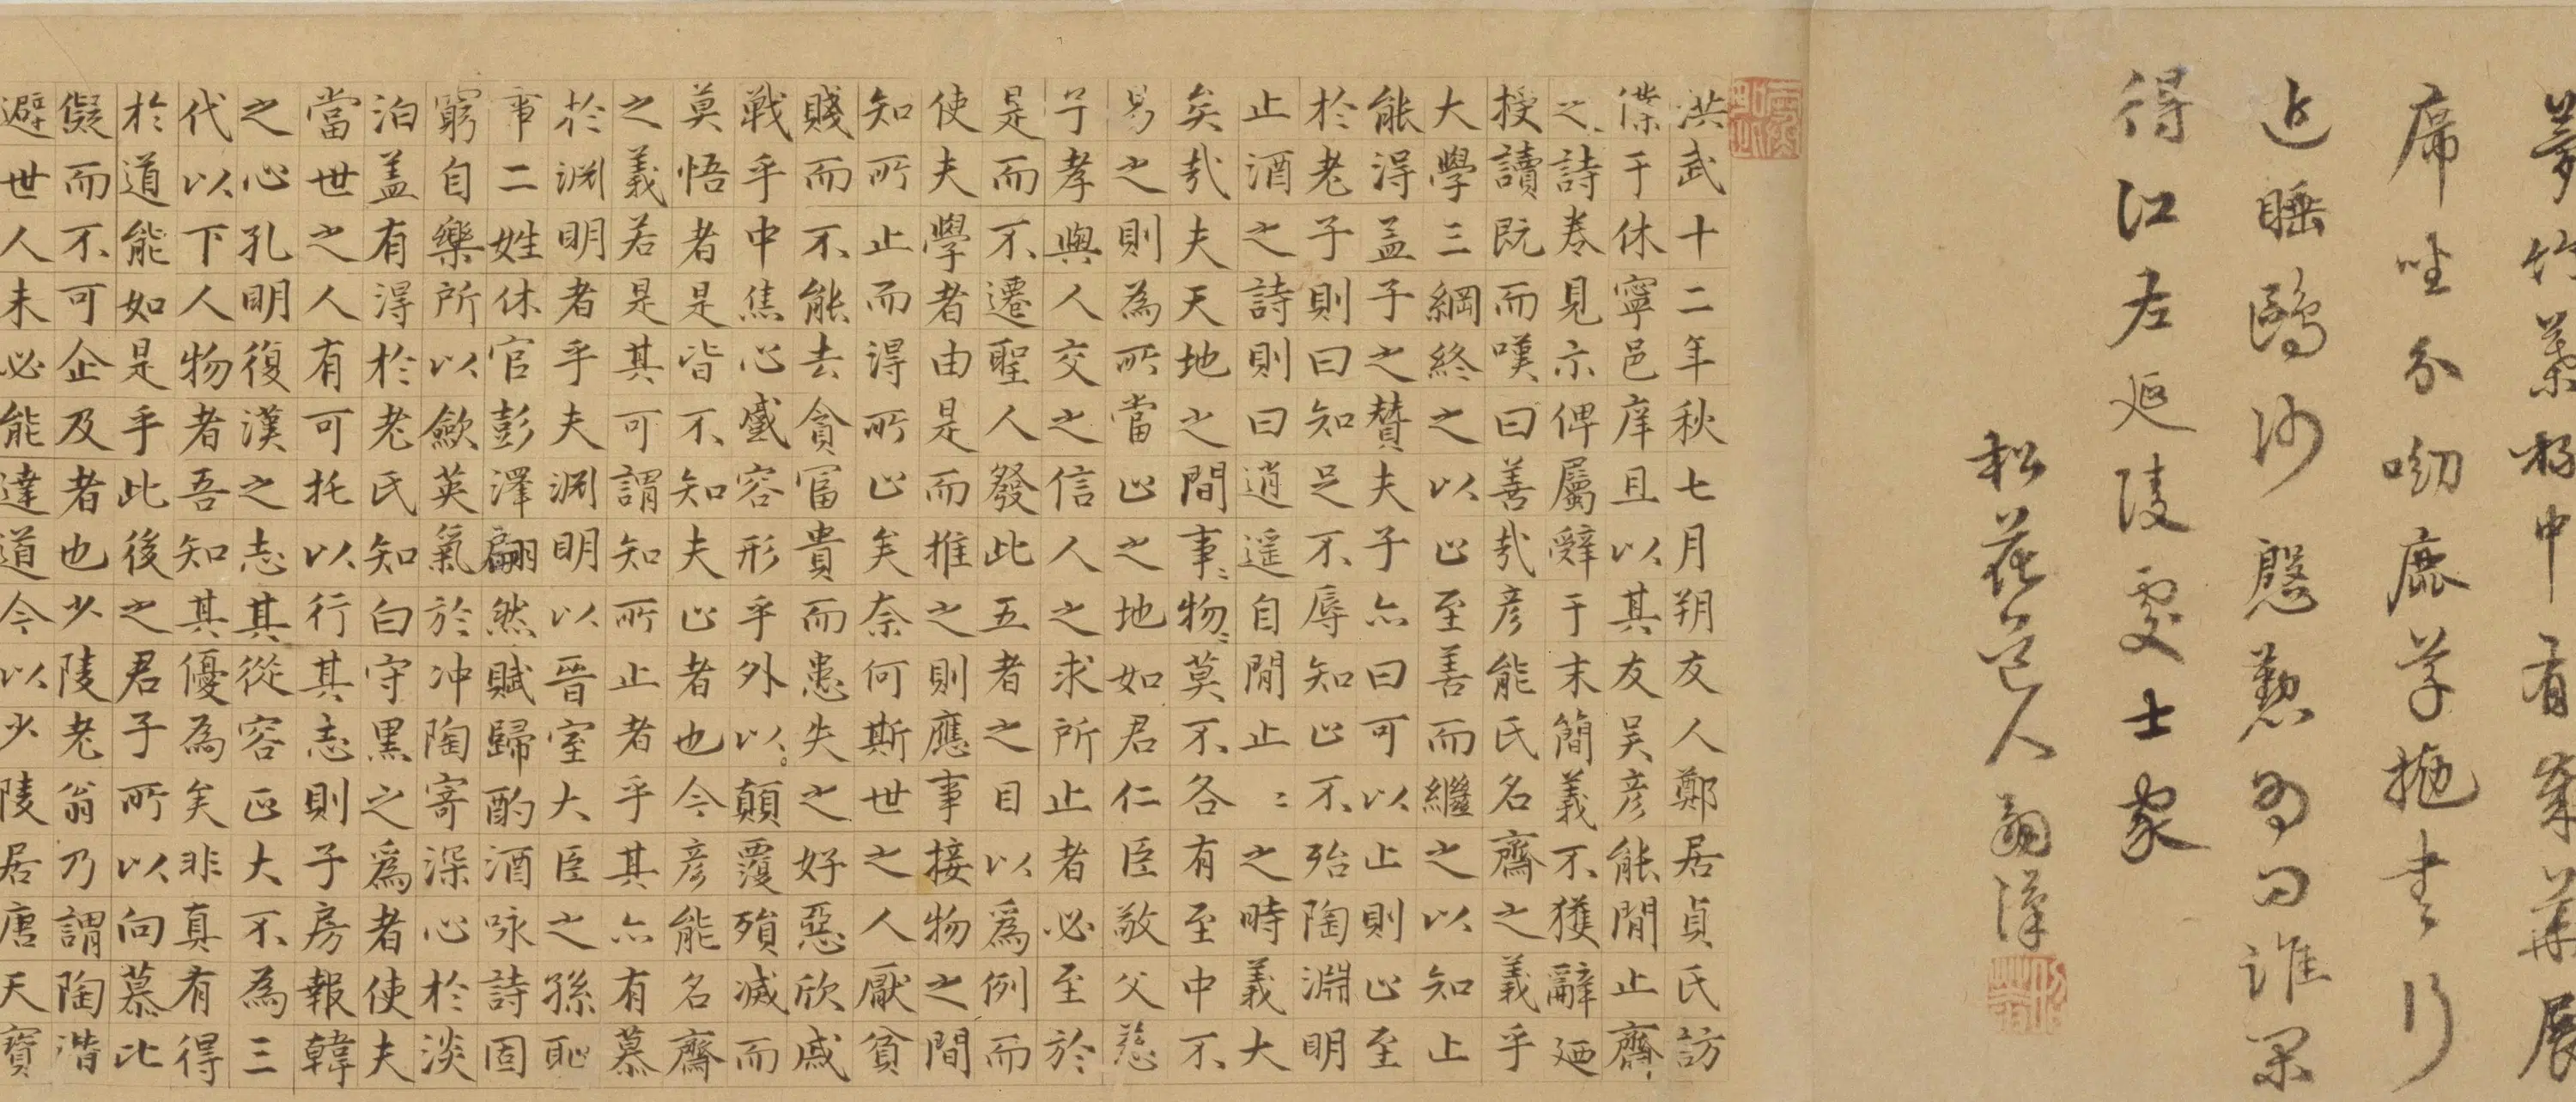 席坐分呦鹿芋拖書行
近睡鷗沙慇懃為問誰
得江左延陵處士家
松花道人翁漢
洪武十二年秋七月朔友人鄭居貞氏訪
僕于休寧邑庠且以其友吴彦能閒止齋
之詩卷見示俾屬辭于末簡義不獲辭廼
授讀既而嘆曰善哉彦能氏名齋之義乎
大學三綱終之以止至善而繼之以知止
能得孟子之贊夫子亦曰可以止則止至
於老子則曰知足不辱知止不殆陶淵明
止酒之詩則曰逍遥自閒止〻之時義大
矣哉夫天地之間事〻物〻莫不各有至中不
易之則為所當止之地如君仁臣敬父慈
子孝與人交之信人之求所止者必至於
是而不遷聖人發此五者之目以爲例而
使夫學者由是而推之則應事接物之間
知所止而得所止矣奈何斯世之人厭貧
賤而不能去貪富貴而患失之好惡欣戚
戰乎中焦心蹙容形乎外以顛覆殞滅而
莫悟者是皆不知夫止者也今彦能名齋
之義若是其可謂知所止者乎其亦有慕
於淵明者乎夫淵明以晉室大臣之孫恥
事二姓休官彭澤翩然賦歸酌酒咏詩固
窮自樂所以歛英氣於冲陶寄深心於淡
泊盖有得於老氏知白守黑之爲者使夫
當世之人有可托以行其志則子房報韓
之心孔明復漢之志其從容正大不為三
代以下人物者吾知其優為矣非真有得
於道能如是乎此後之君子所以向慕比
儗而不可企及者也少陵老翁乃謂陶潛
避世人未必能達道今以少陵居唐天寶